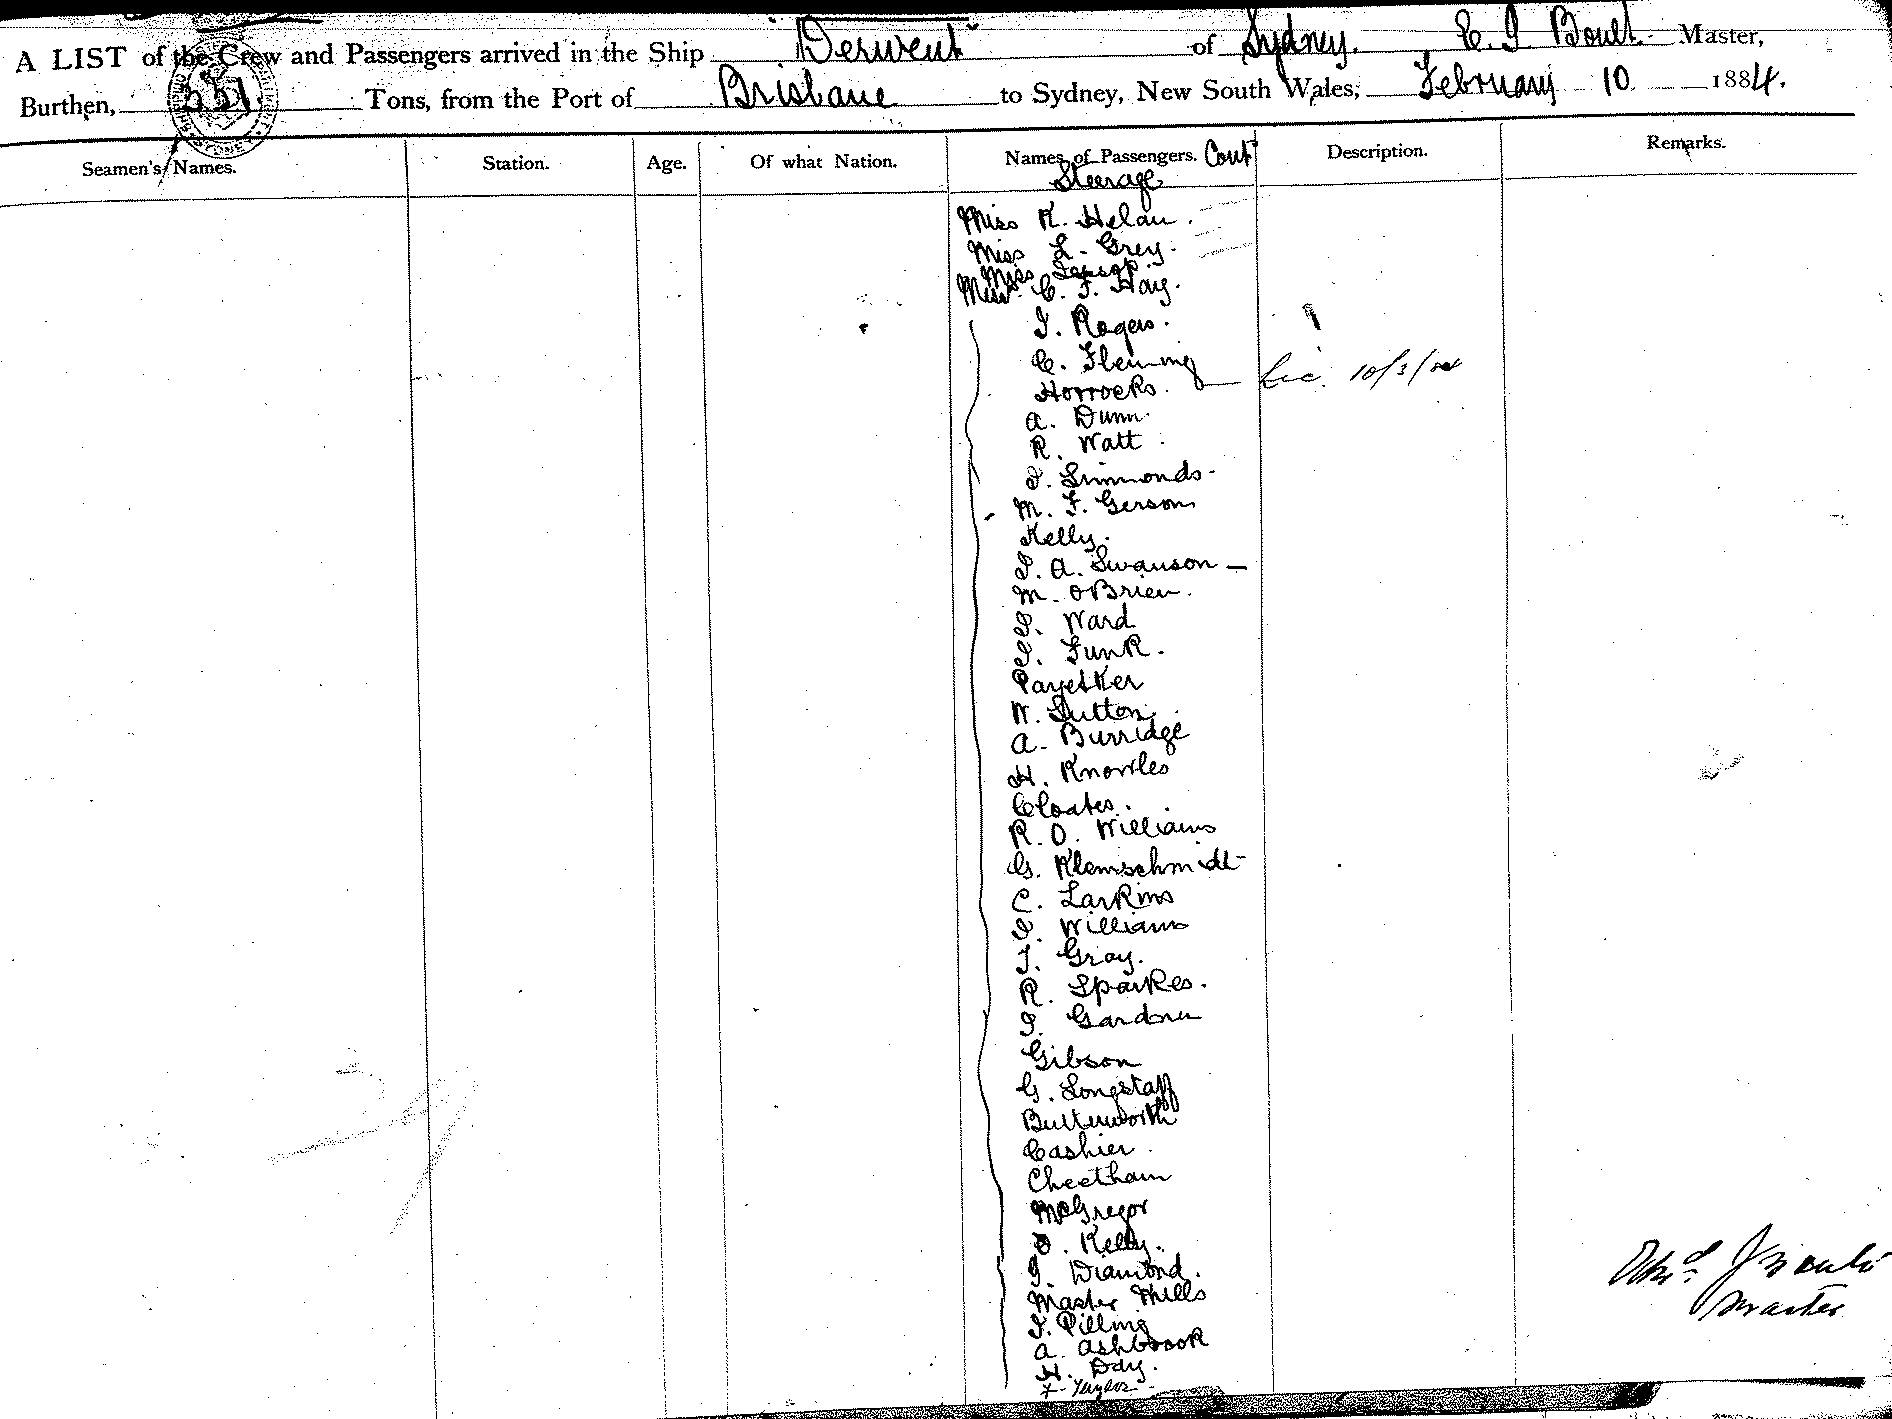 A LIST of the Crew and Passengers arrived in the Ship "Derwent" of Sydney. C. J Boult Master,
Burthen, 551. Tons, from the Port of Brisbane to Sydney, New South Wales, February 10 1884.
Seamen's Names. Station. Age. Of what Nation. Names of Passengers. Cont Description. Remarks.
Steerage
Miss K. Helan.
Miss L. Grey.
Miss Jessop.
Miss C. F. Hay.
J. Rogers.
C. Fleming
Horrocks.
A. Dunn.
R. Watt
S. Simmonds.
M. F. Gerson
Kelly.
S. A. Swanson —
M. OBrien.
S. Ward
S. Funk.
W. Sutton.
A. Burridge
H. Knowles
Cloates.
R. O. Williams
G. Klemschmidt
C. Larkins
S. Williams
J. Gray.
R. Sparkes.
S. Gardner
Gibson
G. Longstaff
Butterworth
Cashier
Cheetham
McGregor
O. Kelly.
J. Diamond.
Master Mills
J. Pilling
A. Ashbrook
H. Day.
F. Taylor
Master